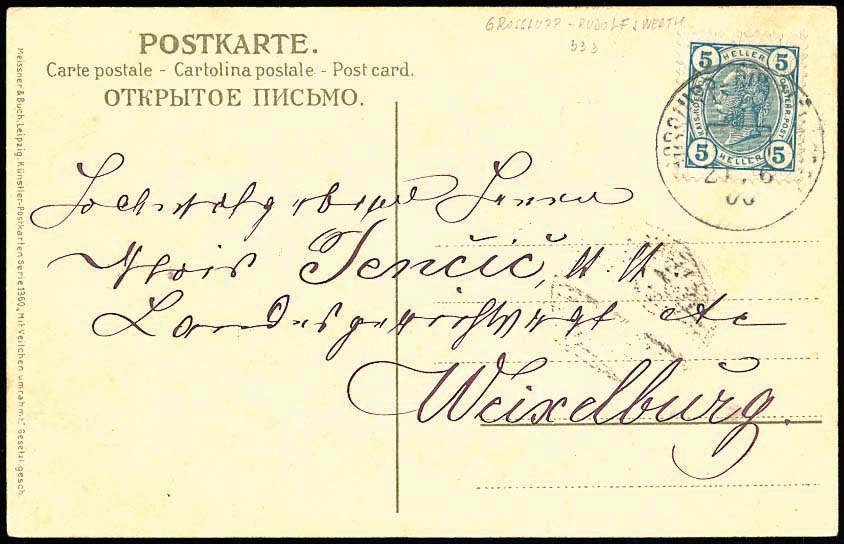 GROSSLUPP - RUDOLFSWERTH
333
POSTKARTE.
Carte postale - Cartolina postale - Post card.
ОТКРЫТОЕ ПИСЬМО.
5 HELLER 5
KAIS. KÖN. OESTERR. POST
5 HELLER 5
21. 6
06
Hochwohlgeboren Herrn
Alois Jenčič, k. k.
Landesgerichtsrat etc
Weixelburg.
Meissner & Buch, Leipzig. Künstler-Postkarten Serie 1360. „Mit Veilchen umrahmt“ Gesetzl. gesch.